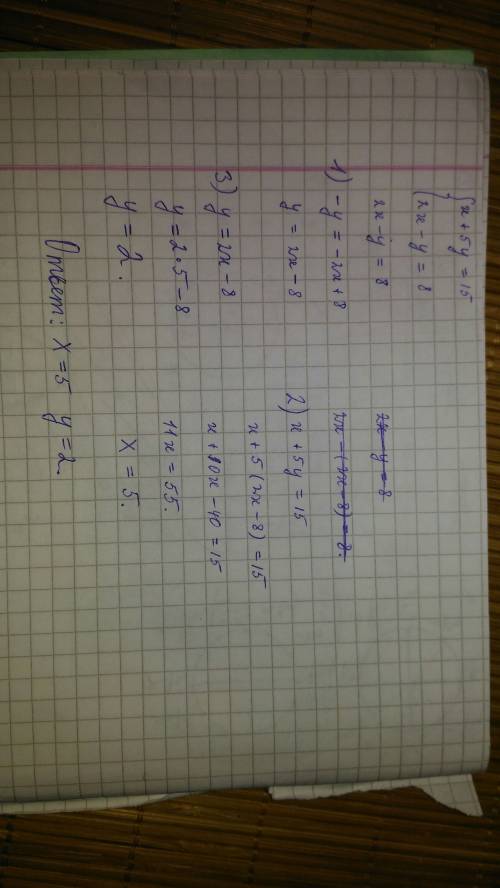 {x + 5y = 15
{2x - y = 8
2x - y = 8
1) - y = - 2x + 8
y = 2x - 8
3) y = 2x - 8
y = 2 · 5 - 8
y = 2.
2x - y = 8
2x - (2x - 8) = 8.
2) x + 5y = 15
x + 5(2x - 8) = 15
x + 10x - 40 = 15
11x = 55.
X = 5.
Ответ: X = 5 y = 2.